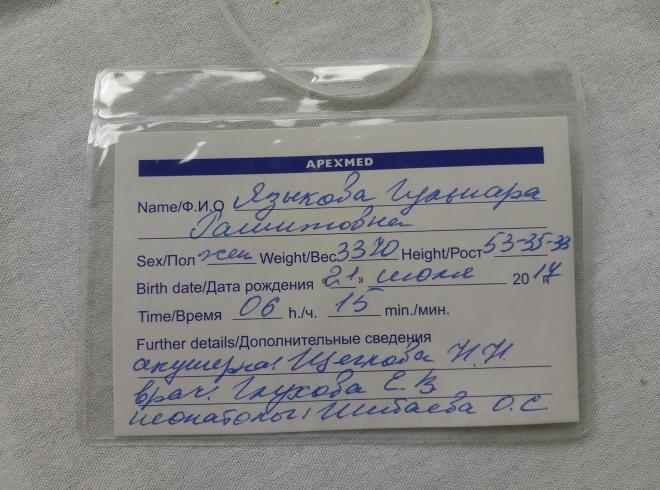 APEXMED
Name/Ф.И.О Языкова Гульнара
Рашитовна
Sex/Пол жен Weight/Вес 3370 Height/Рост 53-35-33
Birth date/Дата рождения "21" июля 2017
Time/Время 06 h./ч. 15 min./мин.
Further details/Дополнительные сведения
акушерка: Щеглова Н.Н.
врач: Глухова Е.В
неонатолог: Шибаева О.С.